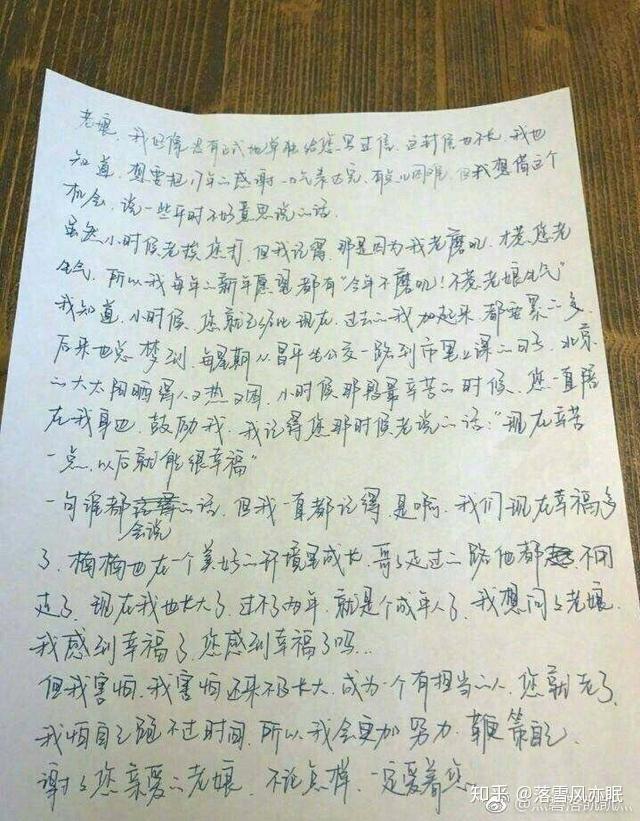 老娘，我好像没有正式地单独给您写过信，这封信也不长，我也
知道，想要把17年的感谢一口气表达完，有点儿困难，但我想借这个
机会，说一些平时不好意思说的话。
虽然小时候老挨您打，但我记得，那是因为我老磨叽，才惹您老
生气，所以我每年的新年愿望都有“今年不磨叽！不惹老娘生气”
我知道，小时候，您就已经比现在、过去的我加起来都要累的多，
后来也总梦到，每星期从昌平坐公交一路到市里上课的日子，北京
的大太阳晒得人又热又困，小时候那段最辛苦的时候，您一直陪
在我身边，鼓励我，我记得您那时候老说的话：“现在辛苦
一点，以后就能很幸福”
一句谁都会说的话，但我一直都记得，是啊，我们现在幸福多
了，楠楠也在一个美好的环境里成长，哥哥走过的路他都不用
走了，现在我也长大了，过不了两年，就是个成年人了，我想问问老娘，
我感到幸福了，您感到幸福了吗…
但我害怕，我害怕还来不及长大，成为一个有担当的人，您就老了，
我怕自己跑不过时间，所以我会更加努力，鞭策自己，
谢谢您亲爱的老娘，不论怎样，一定爱着您。
知乎 @落雪风亦眠